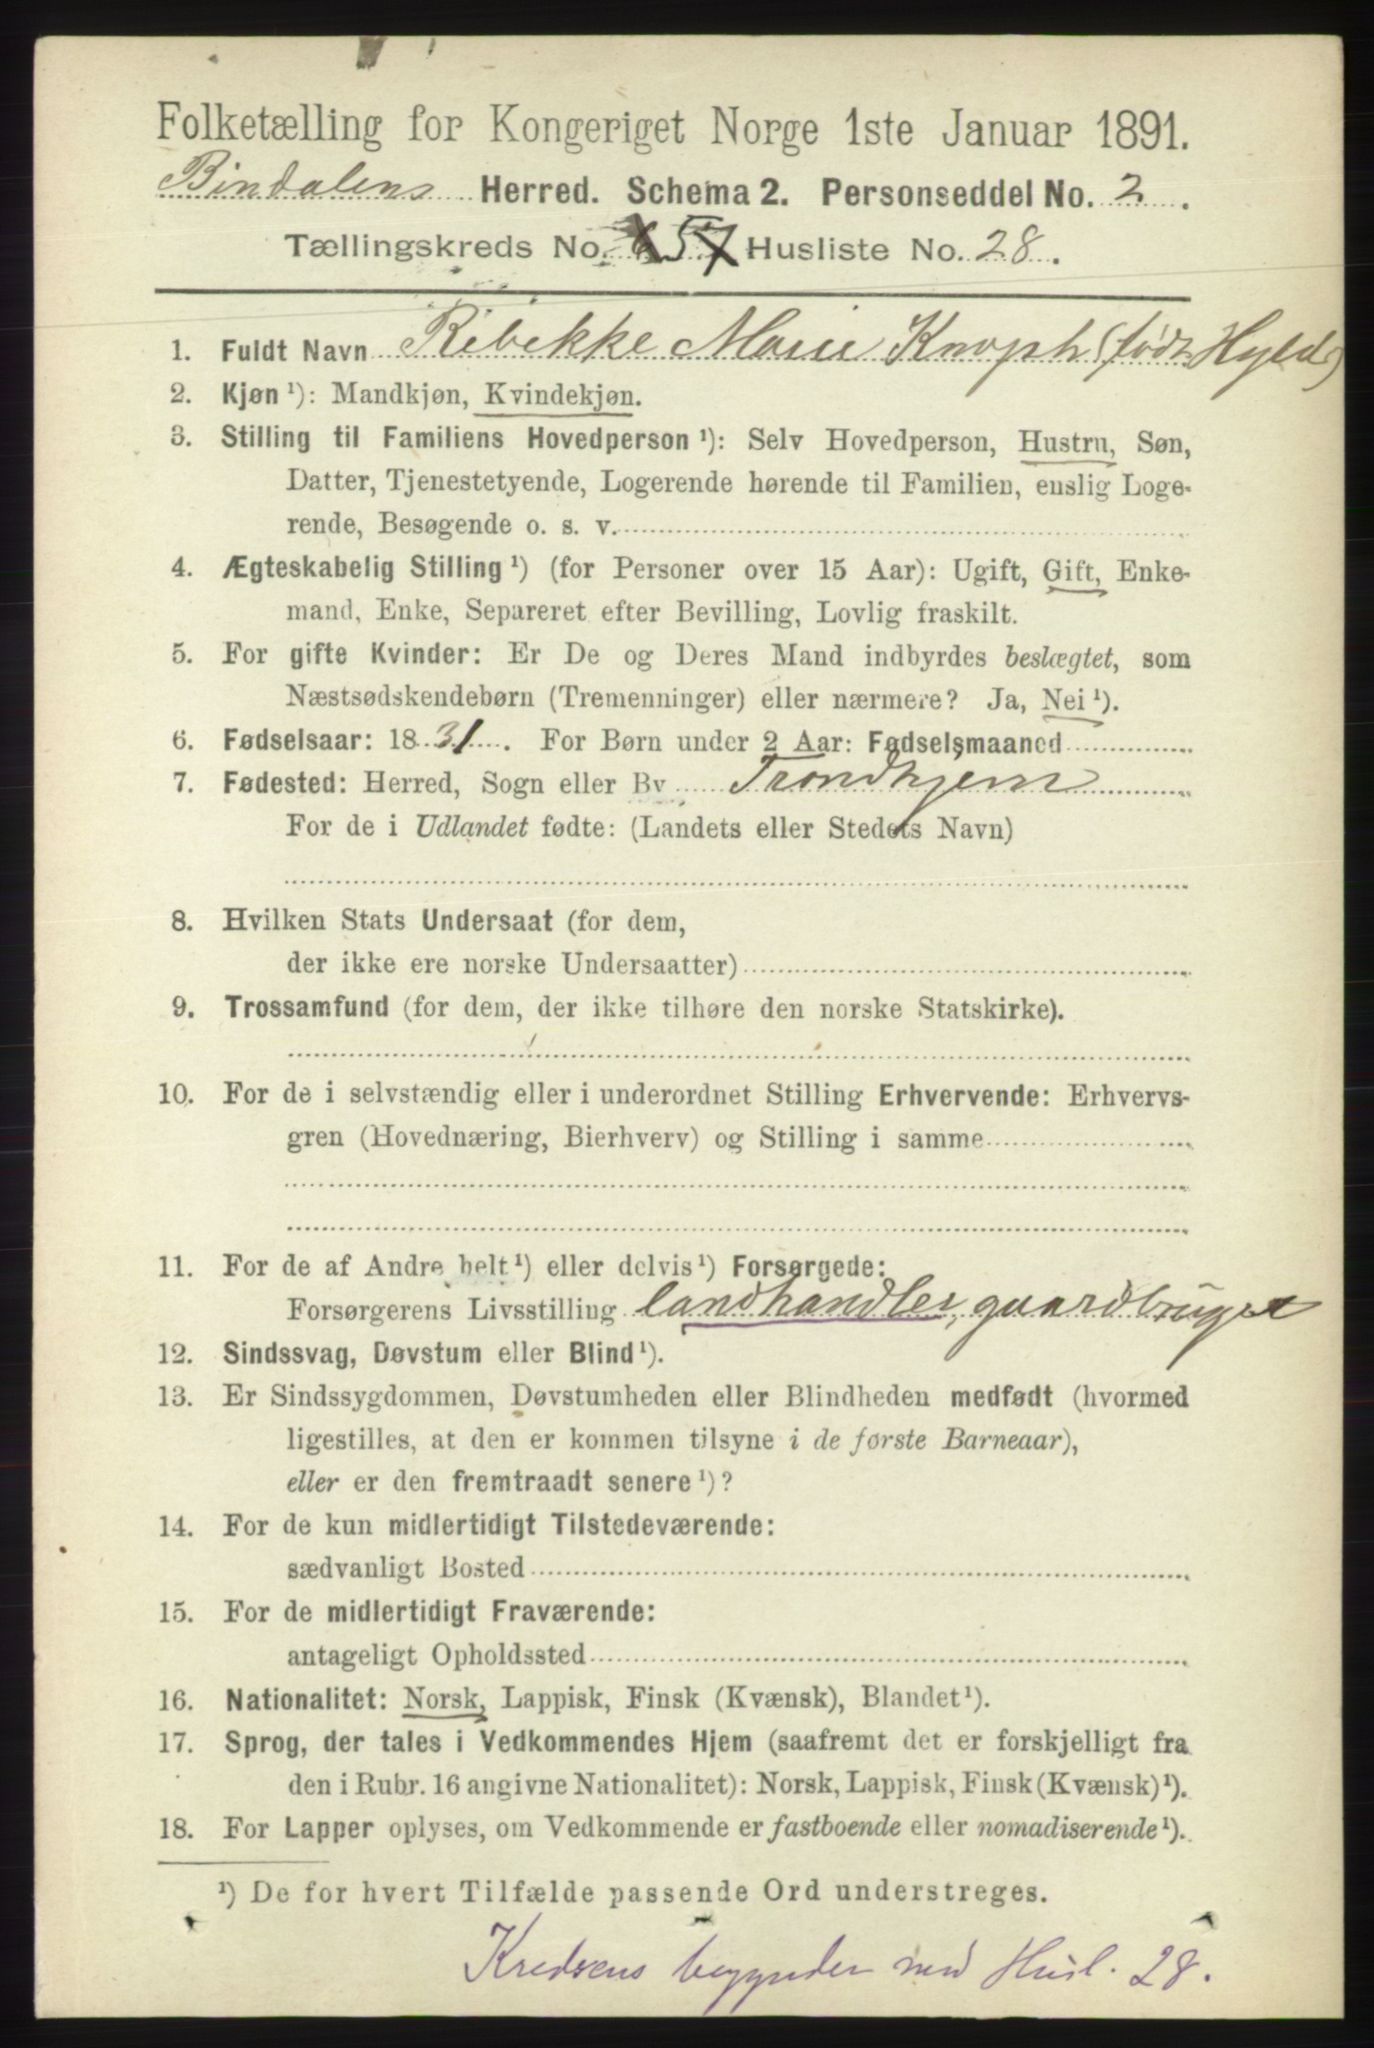 Folketælling for Kongeriget Norge 1ste Januar 1891.
Bindalens Herred. Schema 2. Personseddel No. 2.
Tællingskreds No. 5 Husliste No. 28.
1. Fuldt Navn Ribekke Marie Knoph (født Hyld)
2. Kjøn ¹): Mandkjøn, Kvindekjøn.
3. Stilling til Familiens Hovedperson ¹): Selv Hovedperson, Hustru, Søn,
Datter, Tjenestetyende, Logerende hørende til Familien, enslig Loge-
rende, Besøgende o. s. v.
4. Ægteskabelig Stilling ¹) (for Personer over 15 Aar): Ugift, Gift, Enke-
mand, Enke, Separeret efter Bevilling, Lovlig fraskilt.
5. For gifte Kvinder: Er De og Deres Mand indbyrdes beslægtet, som
Næstsødskendebørn (Tremenninger) eller nærmere? Ja, Nei ¹).
6. Fødselsaar: 1831. For Børn under 2 Aar: Fødselsmaaned
7. Fødested: Herred, Sogn eller By Trondhjem
For de i Udlandet fødte: (Landets eller Stedets Navn)
8. Hvilken Stats Undersaat (for dem,
der ikke ere norske Undersaatter)
9. Trossamfund (for dem, der ikke tilhøre den norske Statskirke).
10. For de i selvstændig eller i underordnet Stilling Erhvervende: Erhvervs-
gren (Hovednæring, Bierhverv) og Stilling i samme
11. For de af Andre helt ¹) eller delvis ¹) Forsørgede:
Forsørgerens Livsstilling landhandler, gaardbruger
12. Sindssvag, Døvstum eller Blind ¹).
13. Er Sindssygdommen, Døvstumheden eller Blindheden medfødt (hvormed
ligestilles, at den er kommen tilsyne i de første Barneaar),
eller er den fremtraadt senere ¹)?
14. For de kun midlertidigt Tilstedeværende:
sædvanligt Bosted
15. For de midlertidigt Fraværende:
antageligt Opholdssted
16. Nationalitet: Norsk, Lappisk, Finsk (Kvænsk), Blandet ¹).
17. Sprog, der tales i Vedkommendes Hjem (saafremt det er forskjelligt fra
den i Rubr. 16 angivne Nationalitet): Norsk, Lappisk, Finsk (Kvænsk) ¹).
18. For Lapper oplyses, om Vedkommende er fastboende eller nomadiserende ¹).
¹) De for hvert Tilfælde passende Ord understreges.
Kredsens begynder med Husl. 28.